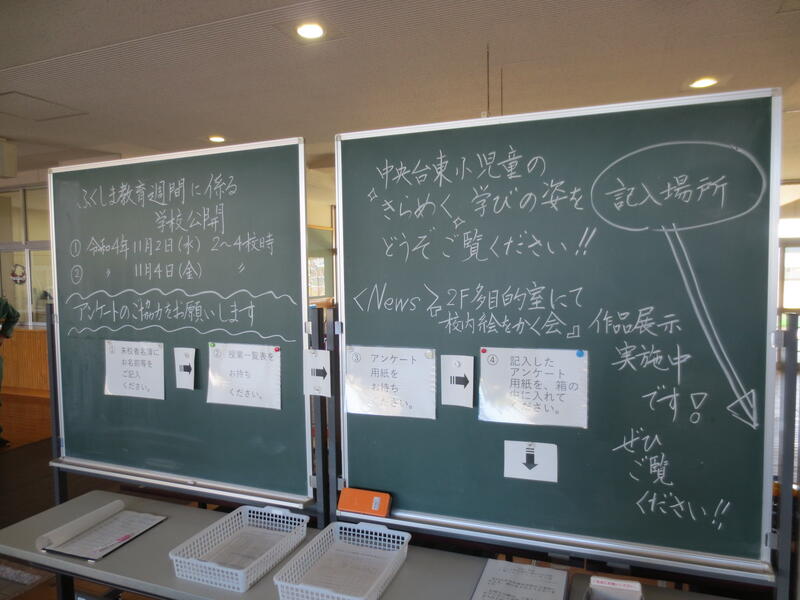 ふくしま教育週間に係る
学校公開
① 令和4年11月2日(水) 2〜4校時
② 〃 11月4日(金) 〃
アンケートのご協力をお願いします
① 来校者名簿に
お名前等を
ご記入
ください。
② 授業一覧表を
お持ち
ください。
中央台東小児童の
きらめく 学びの姿を
どうぞご覧ください!!
記入場所
<News> 2F多目的室にて
『校内絵をかく会』 作品展示
実施中
です!
ぜひ
ご覧
ください!!
③ アンケート
用紙を
お持ち
ください。
④ 記入した
アンケート
用紙を、箱の
中に入れて
ください。